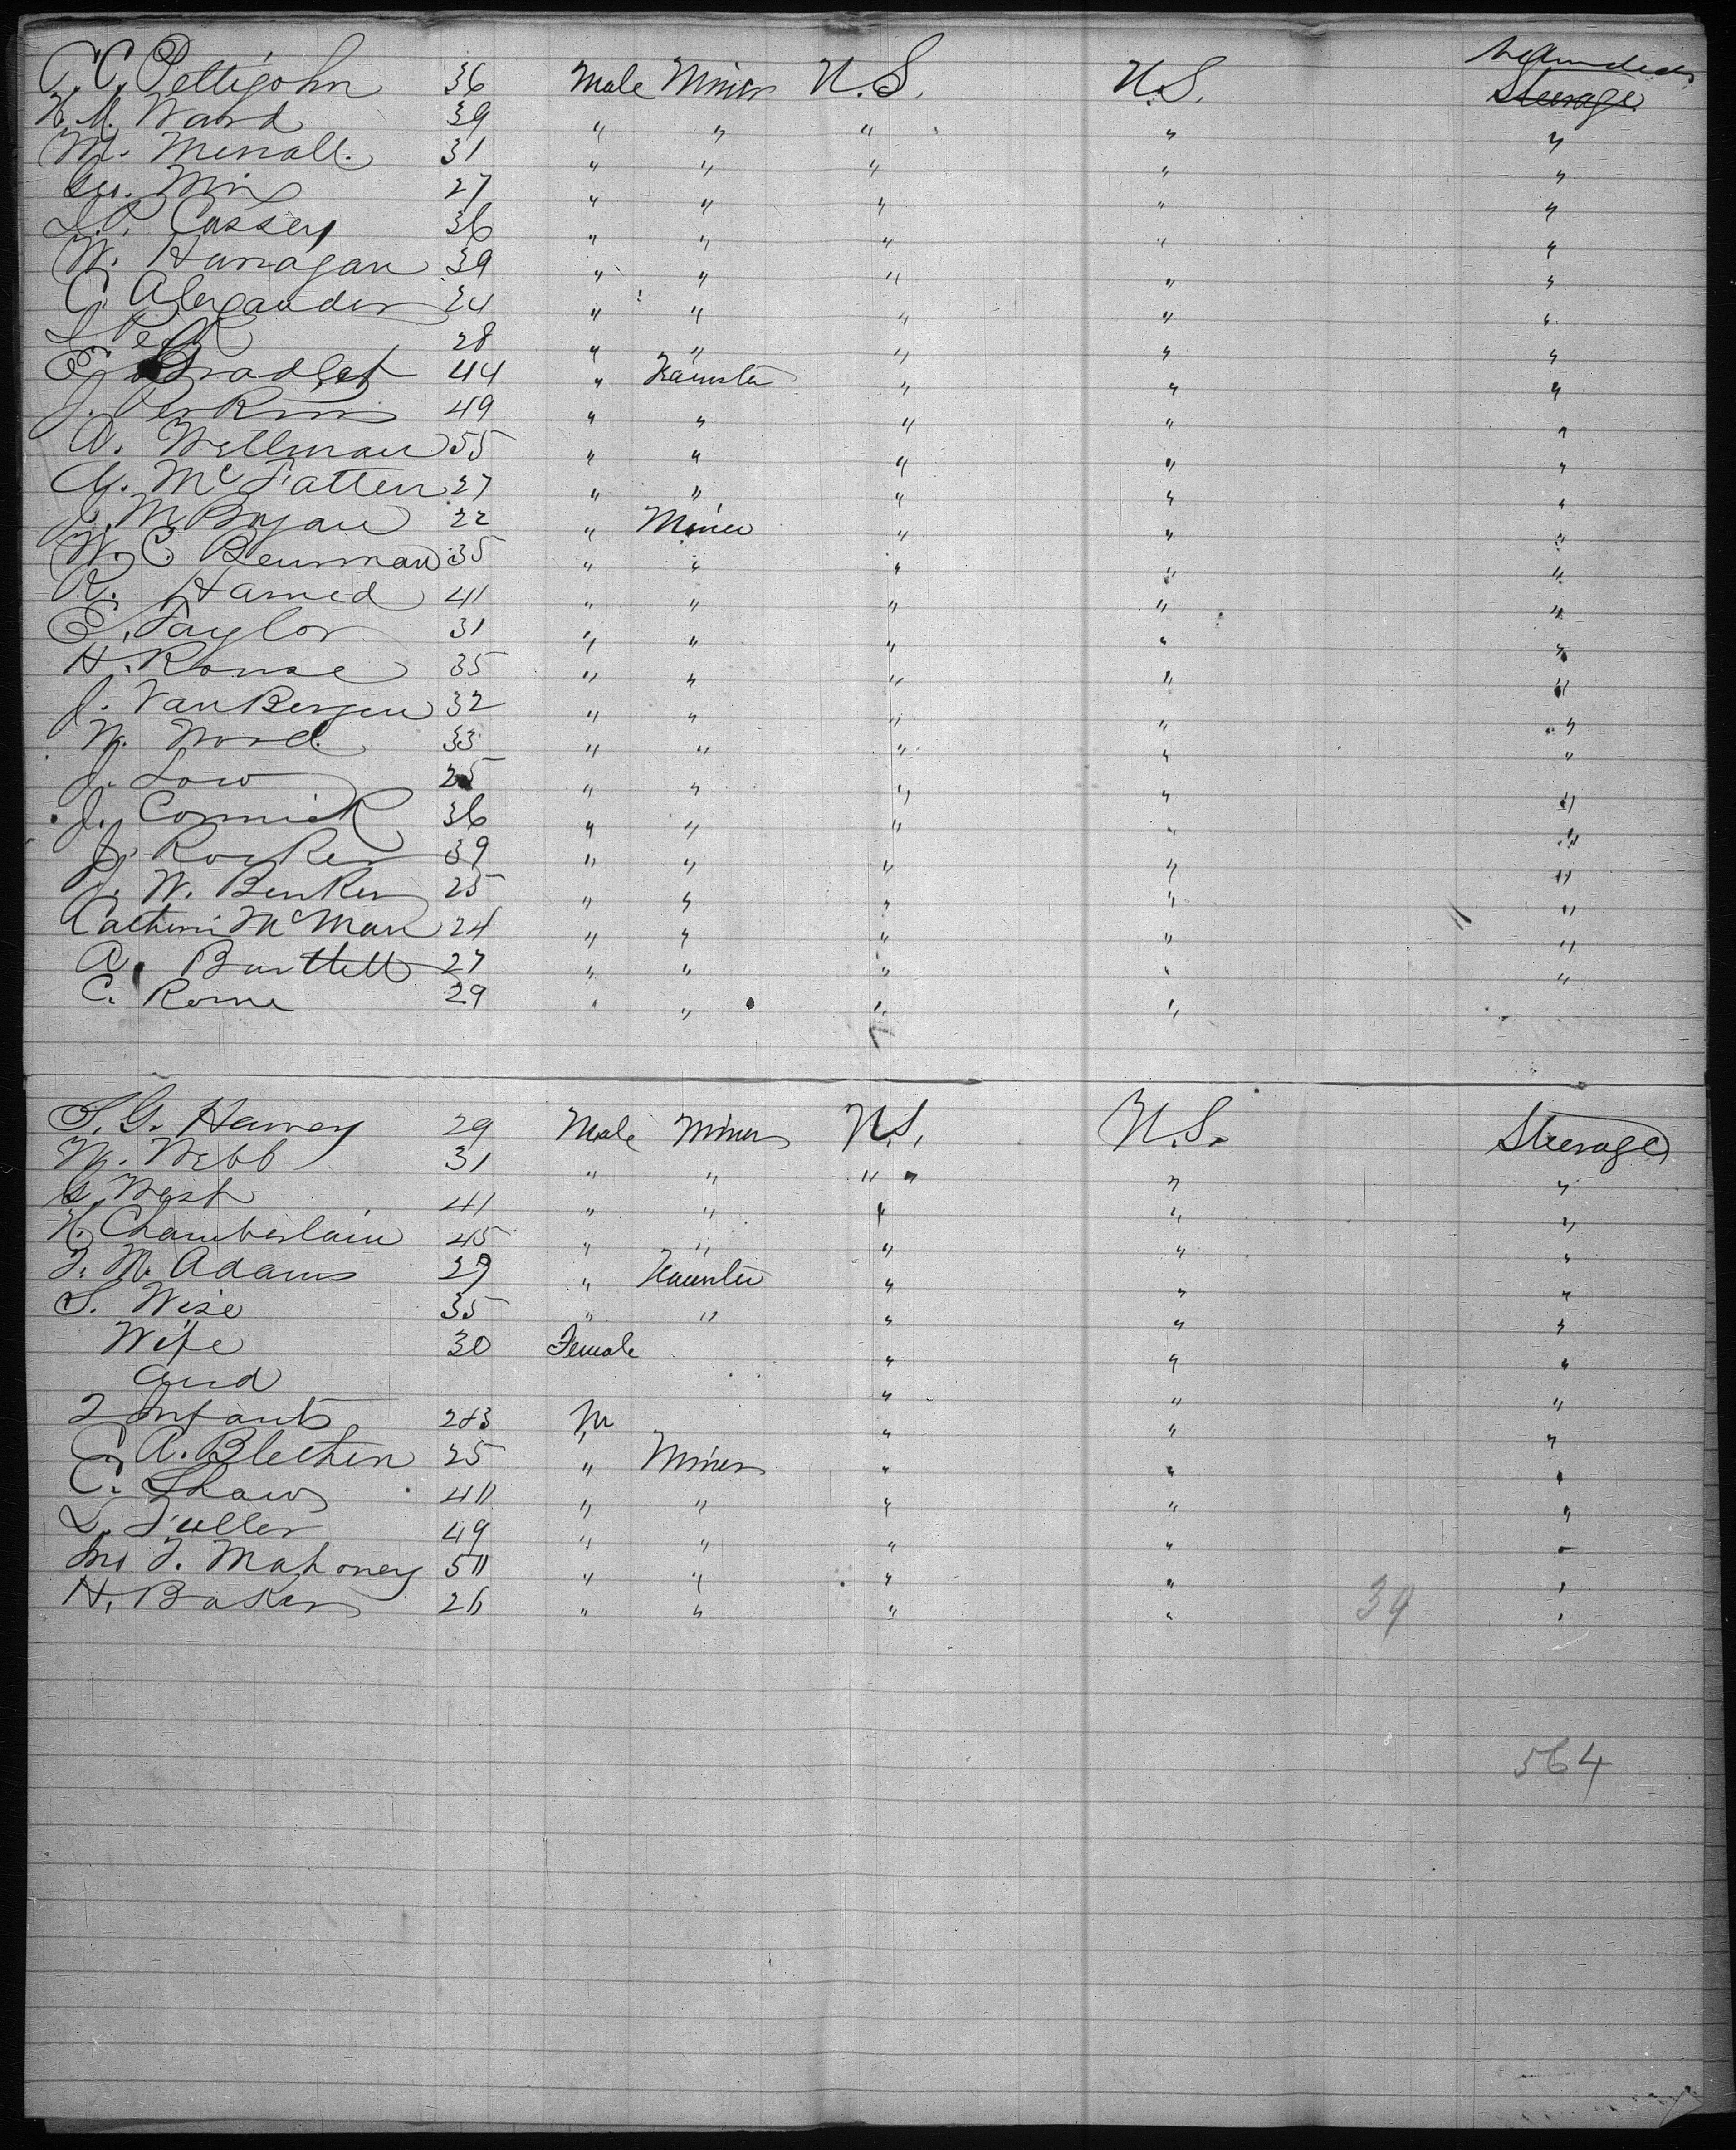 C. C. Pettijohn 36 Male Miner U.S. U.S. Steerage
H. M. Ward 39 " " " " "
M. 31 " " " " "
27 " " " " "
L. P. Cassey 36 " " " " "
W. Hanagan 39 " " " " "
C. Alexander 24 " " " " "
28 " " " " "
E. Bradley 44 " " " "
J. Perkins 49 " " " " "
A. Wellman 55 " " " " "
McFatten 27 " " " " "
J. McBryan 22 " Miner " " "
W. C. Benman 35 " " " " "
R. Harned 41 " " " " "
E. Taylor 31 " " " " "
H. Rouse 35 " " " " "
J. VanBergen 32 " " " " "
W. Wood 33 " " " " "
J. Low 25 " " " " "
J. Cormick 36 " " " " "
J. 39 " " " " "
J. W. Benker 25 " " " " "
Catherin McMan 24 " " " " "
A. Bartlett 27 " " " " "
C. Rome 29 " " " "
S. G. Harvey 29 Male Miner U.S. U.S. Steerage
W. Webb 31 " " " " "
West 41 " " " " "
H. Chamberlain 45 " " " " "
F. M. Adams 29 " " " "
S. Wise 35 " " " " "
Wife 30 Female " " "
and " " "
2 Infants 2&3 M " " "
C. A. Blethen 25 " Miner " " "
C. Shaw 40 " " " " "
L. Fuller 49 " " " " "
Mahoney 50 " " " " "
H. Baker 26 " " " " 39 "
564